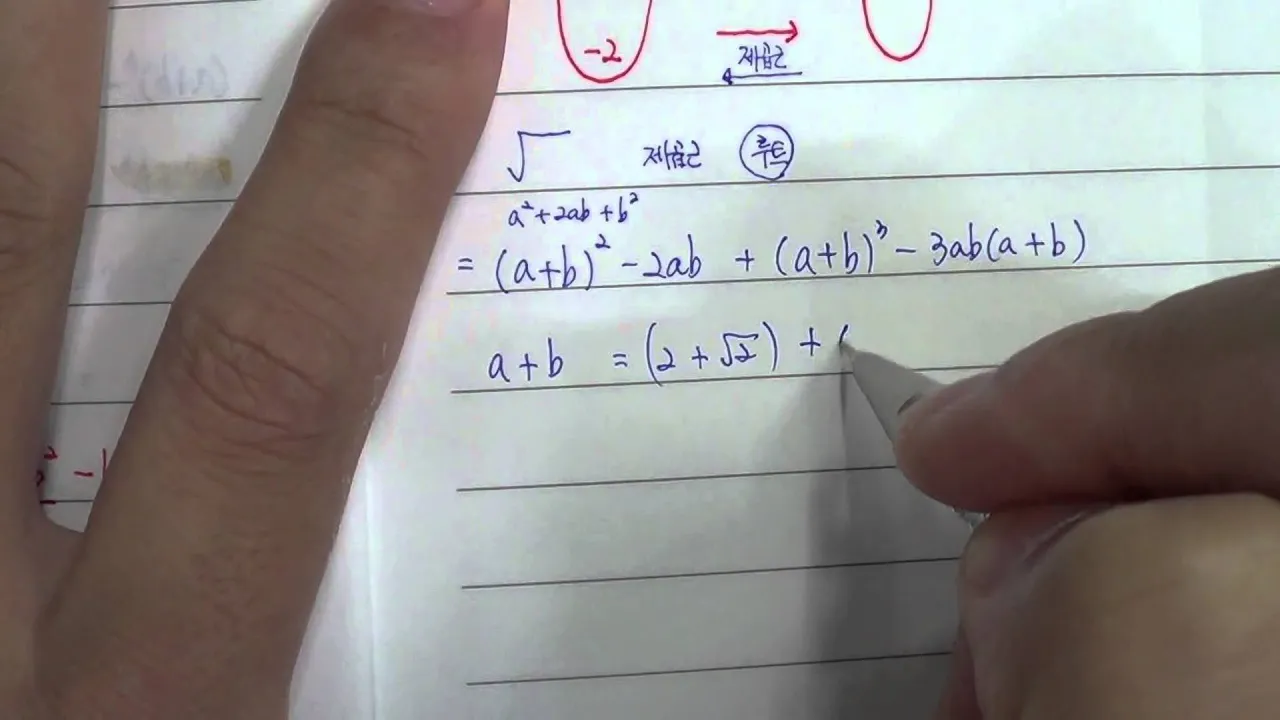 -2
제곱근
√ 제곱근 루트
a²+2ab+b²
= (a+b)² - 2ab + (a+b)³ - 3ab(a+b)
a+b = (2+√2) + (